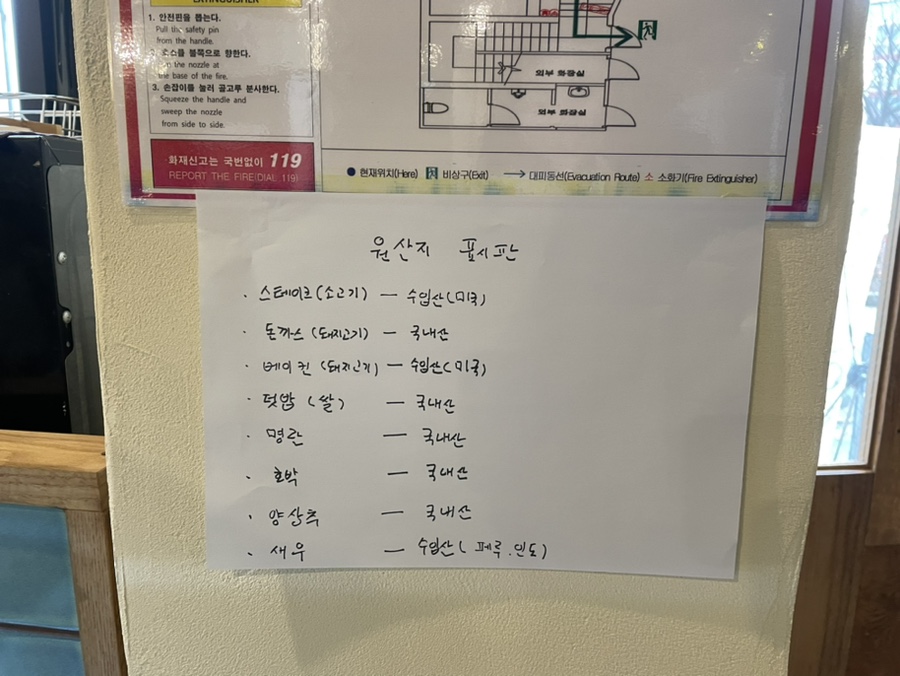 EXTINGUISHER
1. 안전핀을 뽑는다.
Pull the safety pin
from the handle.
호스를 불쪽으로 향한다.
the nozzle at
the base of the fire.
3. 손잡이를 눌러 골고루 분사한다.
Squeeze the handle and
sweep the nozzle
from side to side.
화재신고는 국번없이 119
REPORT THE FIRE(DIAL 119)
외부 화장실
외부 화장실
현재위치(Here) 비상구(Exit) 대피동선(Evacuation Route) 소 소화기(Fire Extinguisher)
원산지 표시판
· 스테이크(소고기) — 수입산(미국)
· 돈까스(돼지고기) — 국내산
· 베이컨 (돼지고기) — 수입산(미국)
· 덧밥 (쌀) — 국내산
· 명란 — 국내산
· 호박 — 국내산
· 양상추 — 국내산
· 새우 — 수입산( 페루.인도)